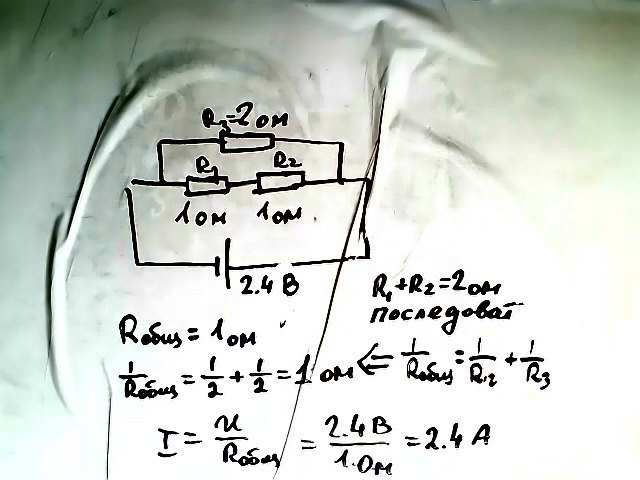 R₃=2 ом
R₁ R₂
1 ом 1 ом
2.4 В
R₁+R₂=2 ом
последоват
Rобщ = 1 ом
1/Rобщ = 1/2 + 1/2 = 1 ом ⇐ 1/Rобщ = 1/R₁₂ + 1/R₃
I = u/Rобщ = 2.4 В/1.Ом = 2.4 А